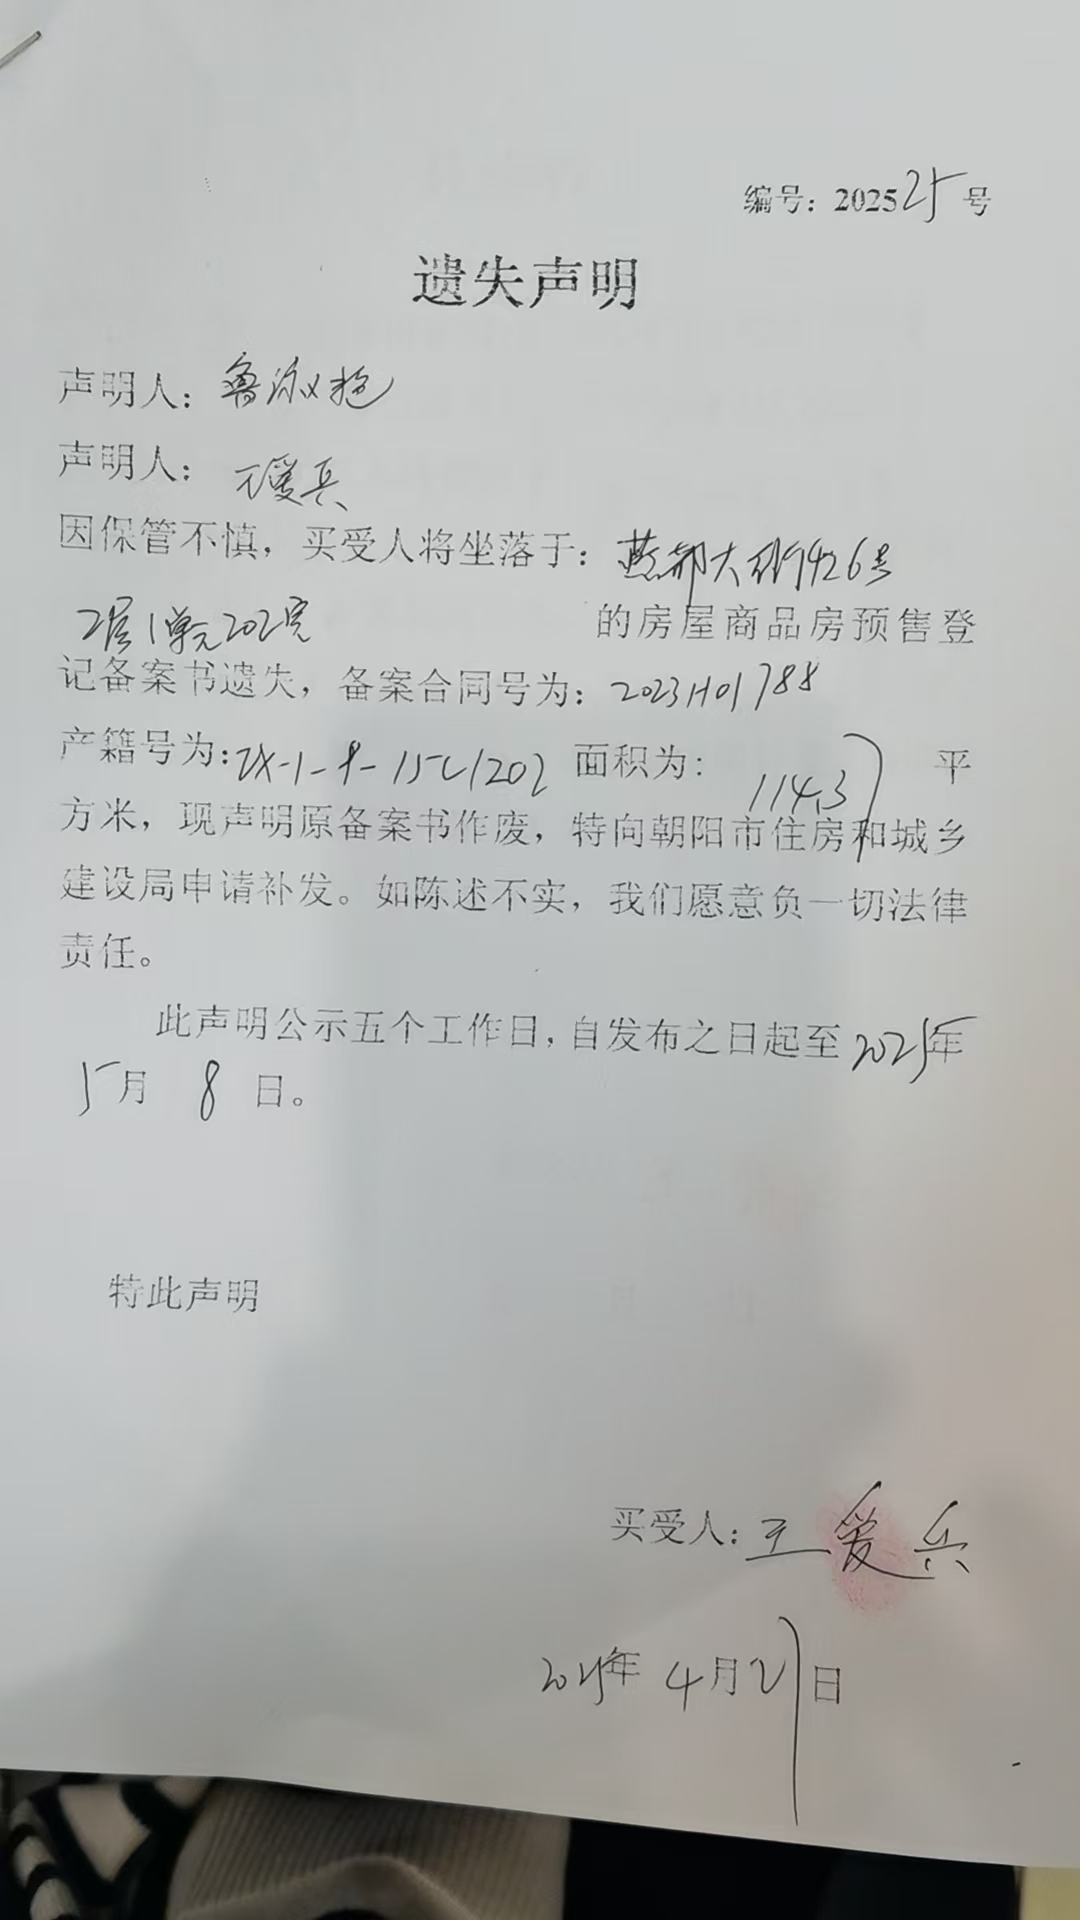 编号：202525号
遗失声明
声明人：鲁淑艳
声明人：王爱兵
因保管不慎，买受人将坐落于：燕都大街426号
2层1单元202室 的房屋商品房预售登
记备案书遗失，备案合同号为：2023H01788
产籍号为：ZX-1-8-15C1202 面积为：114.37 平
方米，现声明原备案书作废，特向朝阳市住房和城乡
建设局申请补发。如陈述不实，我们愿意负一切法律
责任。
此声明公示五个工作日，自发布之日起至2025年
5月 8 日。
特此声明
买受人：王爱兵
2025年 4月27日